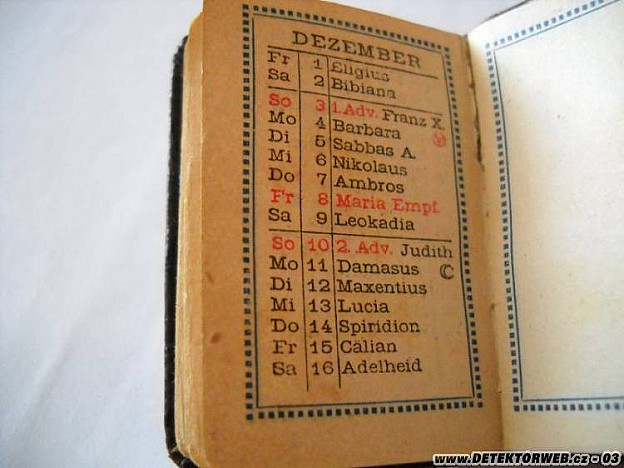 DEZEMBER
Fr 1 Eligius
Sa 2 Bibiana
So 3 1. Adv. Franz X.
Mo 4 Barbara
Di 5 Sabbas A.
Mi 6 Nikolaus
Do 7 Ambros
Fr 8 Maria Empf.
Sa 9 Leokadia
So 10 2. Adv. Judith
Mo 11 Damasus
Di 12 Maxentius
Mi 13 Lucia
Do 14 Spiridion
Fr 15 Cälian
Sa 16 Adelheid
www.DETEKTORWEB.cz - 03